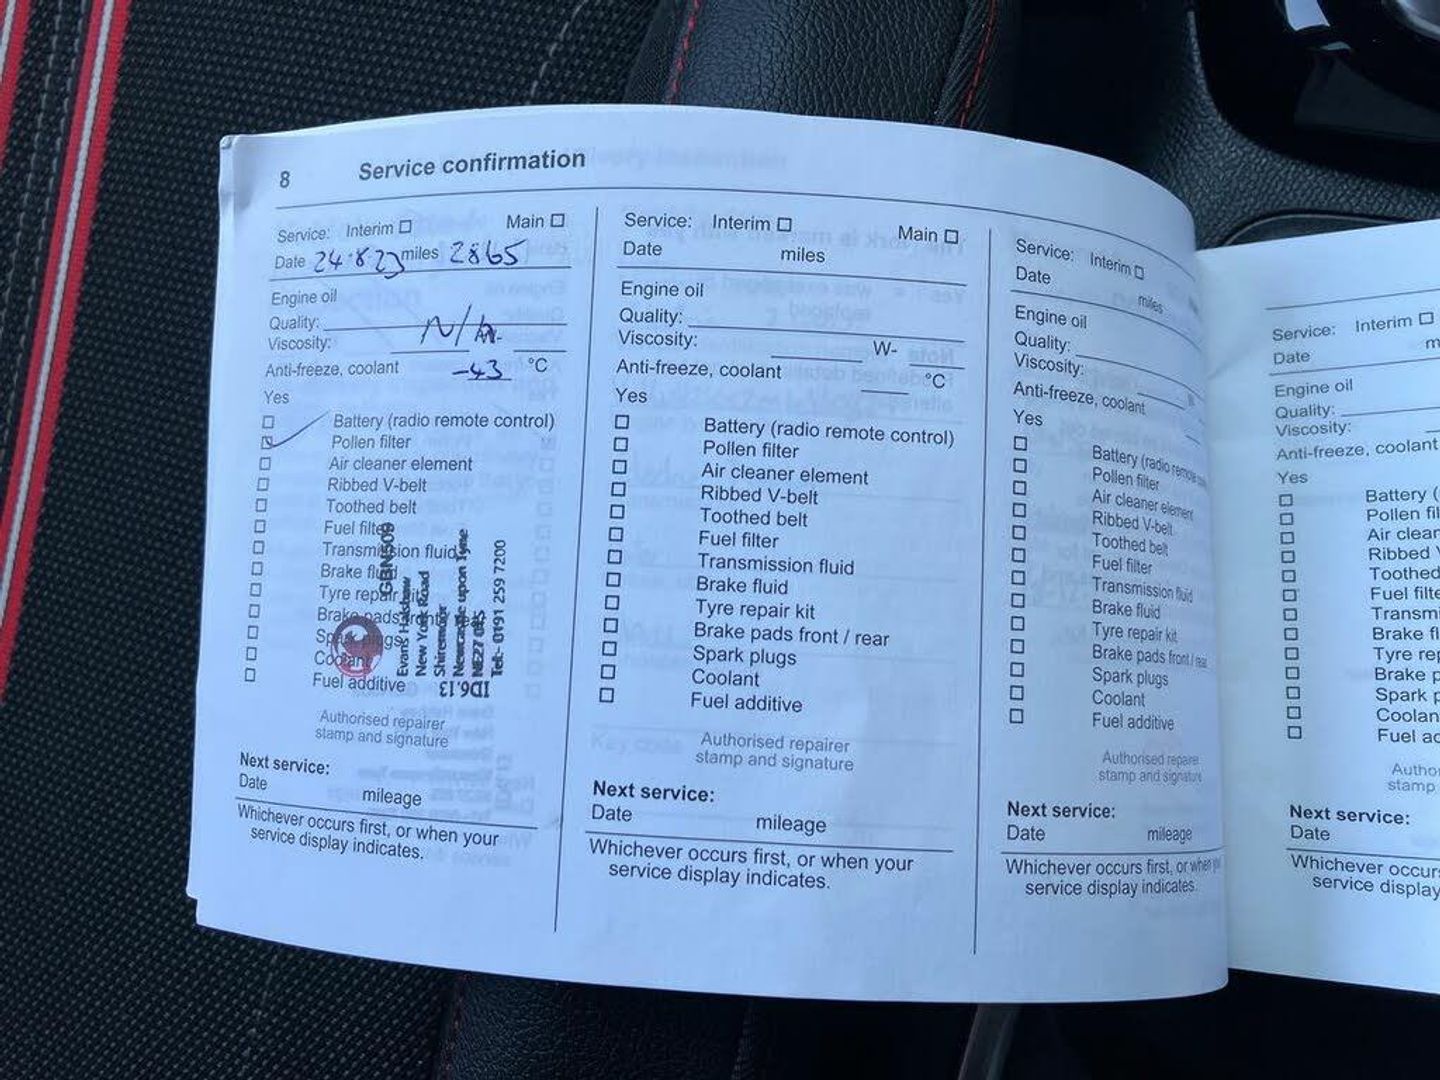 8 Service confirmation
Service: Interim Main
Date 24.8.23 miles 2865
Engine oil
Quality:
Viscosity: N/A W-
Anti-freeze, coolant -43 °C
Yes
Battery (radio remote control)
Pollen filter
Air cleaner element
Ribbed V-belt
Toothed belt
Fuel filter
Transmission fluid
Brake fluid
Tyre repair kit
Brake pads front / rear
Spark plugs
Coolant
Fuel additive
GBN509
Evans Halshaw
New York Road
Shiremoor
Newcastle upon Tyne
Tel:- 0191 259 7200
Authorised repairer
stamp and signature
Next service:
Date mileage
Whichever occurs first, or when your
service display indicates.
Service: Interim Main
Date miles
Engine oil
Quality:
Viscosity: W-
Anti-freeze, coolant °C
Yes
Battery (radio remote control)
Pollen filter
Air cleaner element
Ribbed V-belt
Toothed belt
Fuel filter
Transmission fluid
Brake fluid
Tyre repair kit
Brake pads front / rear
Spark plugs
Coolant
Fuel additive
Authorised repairer
stamp and signature
Next service:
Date mileage
Whichever occurs first, or when your
service display indicates.
Service: Interim
Date miles
Engine oil
Quality:
Viscosity:
Anti-freeze, coolant
Yes
Battery (radio remote
Pollen filter
Air cleaner element
Ribbed V-belt
Toothed belt
Fuel filter
Transmission fluid
Brake fluid
Tyre repair kit
Brake pads front / rear
Spark plugs
Coolant
Fuel additive
Authorised repairer
stamp and signature
Next service:
Date mileage
Whichever occurs first, or when
service display indicates.
Service: Interim
Date m
Engine oil
Quality:
Viscosity:
Anti-freeze, coolant
Yes
Battery (
Pollen fil
Air clear
Ribbed V
Toothed
Fuel filte
Transmi
Brake fl
Tyre rep
Brake p
Spark p
Coolan
Fuel ad
Autho
stamp
Next service:
Date
Whichever occurs
service display